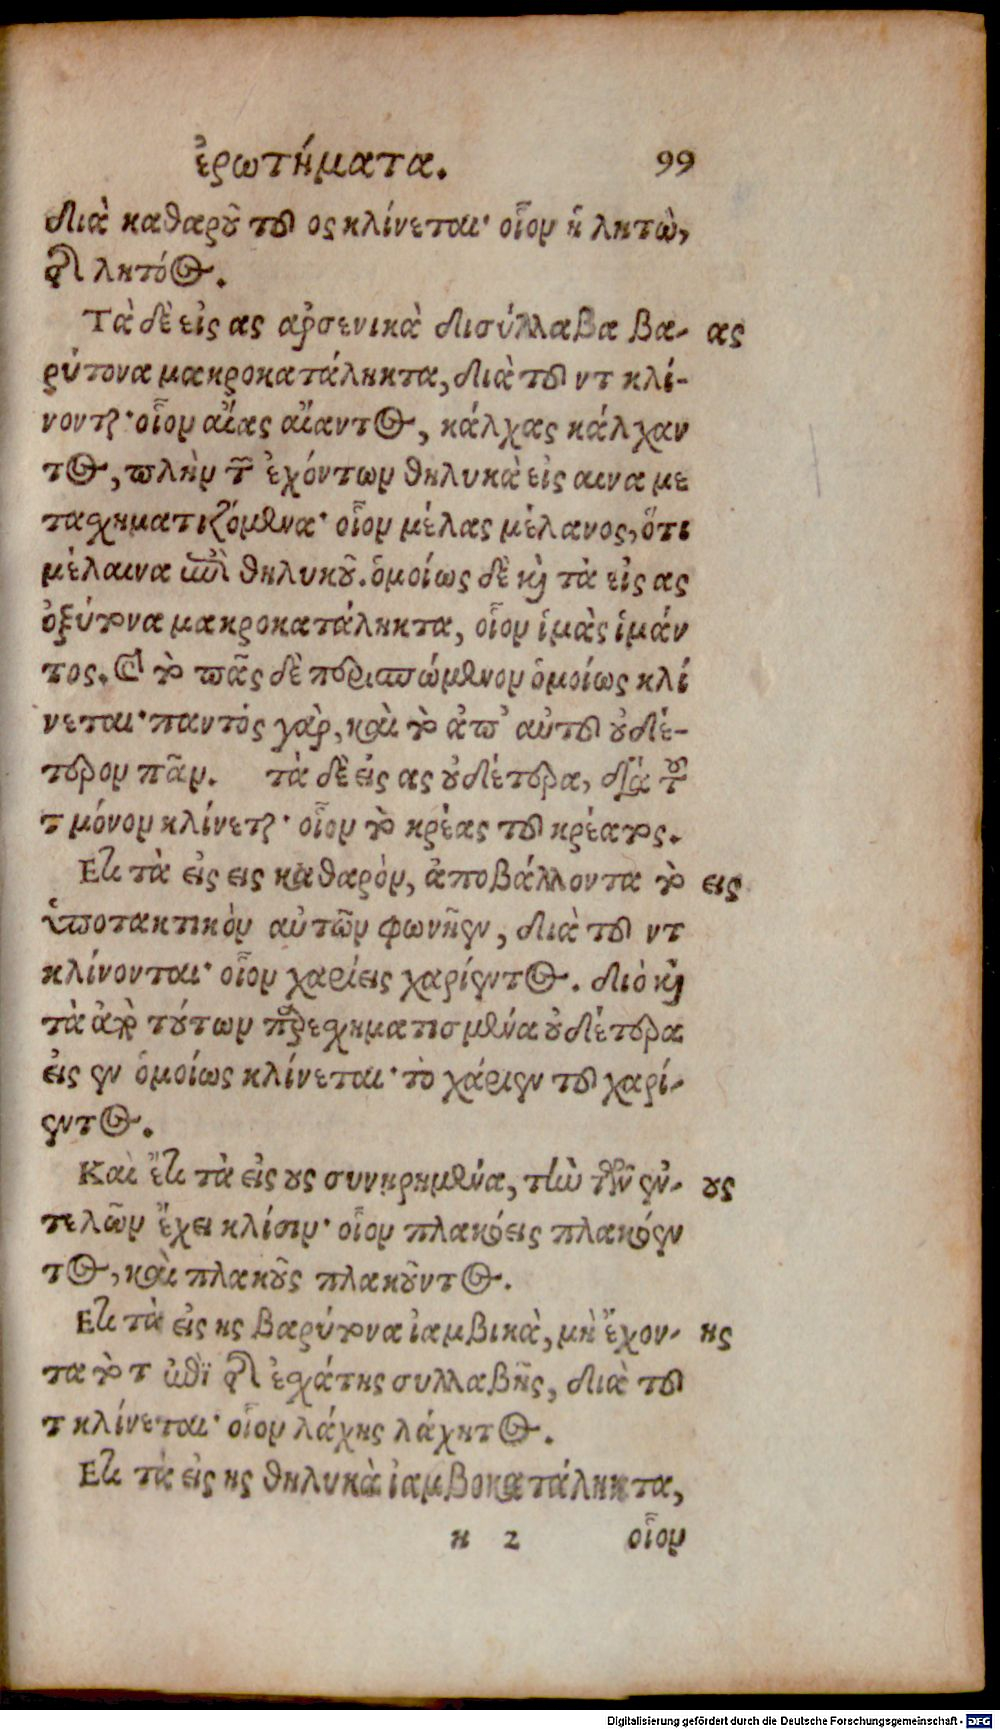 ἐρωτήματα. 99
διὰ καθαροῦ τοῦ ος κλίνεται· οἷον ἡ λητὼ,
τῆς λητόος.
Τὰ δὲ εἰς ας ἀρσενικὰ δισύλλαβα βα- ας
ρύτονα μακροκατάληκτα, διὰ τοῦ ντ κλί-
νονται· οἷον αἴας αἴαντος, κάλχας κάλχαν
τος, πλὴν τῶν ἐχόντων θηλυκὰ εἰς αινα με
τασχηματιζόμενα· οἷον μέλας μέλανος, ὅτι
μέλαινα ἐπὶ θηλυκοῦ. ὁμοίως δὲ καὶ τὰ εἰς ας
ὀξύτονα μακροκατάληκτα, οἷον ἱμὰς ἱμάν
τος. καὶ τὸ πᾶς δὲ περισπώμενον ὁμοίως κλί
νεται· παντός γὰρ, καὶ τὸ ἀπ' αὐτοῦ οὐδέ-
τερον πᾶν. τὰ δὲ εἰς ας οὐδέτερα, διὰ τοῦ
τ μόνον κλίνεται· οἷον τὸ κρέας τοῦ κρέατος.
Ετι τὰ εἰς εις καθαρὸν, ἀποβάλλοντα τὸ εις
ὑποτακτικὸν αὐτῶν φωνῆεν, διὰ τοῦ ντ
κλίνονται· οἷον χαρίεις χαρίεντος. διὸ καὶ
τὰ ἀπὸ τούτων παρεσχηματισμένα οὐδέτερα
εἰς εν ὁμοίως κλίνεται· τὸ χάριεν τοῦ χαρί-
εντος.
Καὶ ἔτι τὰ εἰς ους συνῃρημένα, τὴν τῶν ἐν- ους
τελῶν ἔχει κλίσιν· οἷον πλακόεις πλακόεν
τος, καὶ πλακοῦς πλακοῦντος.
Ετι τὰ εἰς ης βαρύτονα ἰαμβικὰ, μὴ ἔχον- ης
τα τὸ τ ἐπὶ τῆς ἐσχάτης συλλαβῆς, διὰ τοῦ
τ κλίνεται· οἷον λάχης λάχητος.
Ετι τὰ εἰς ης θηλυκὰ ἰαμβοκατάληκτα,
η 2 οἷον
Digitalisierung gefördert durch die Deutsche Forschungsgemeinschaft - DFG